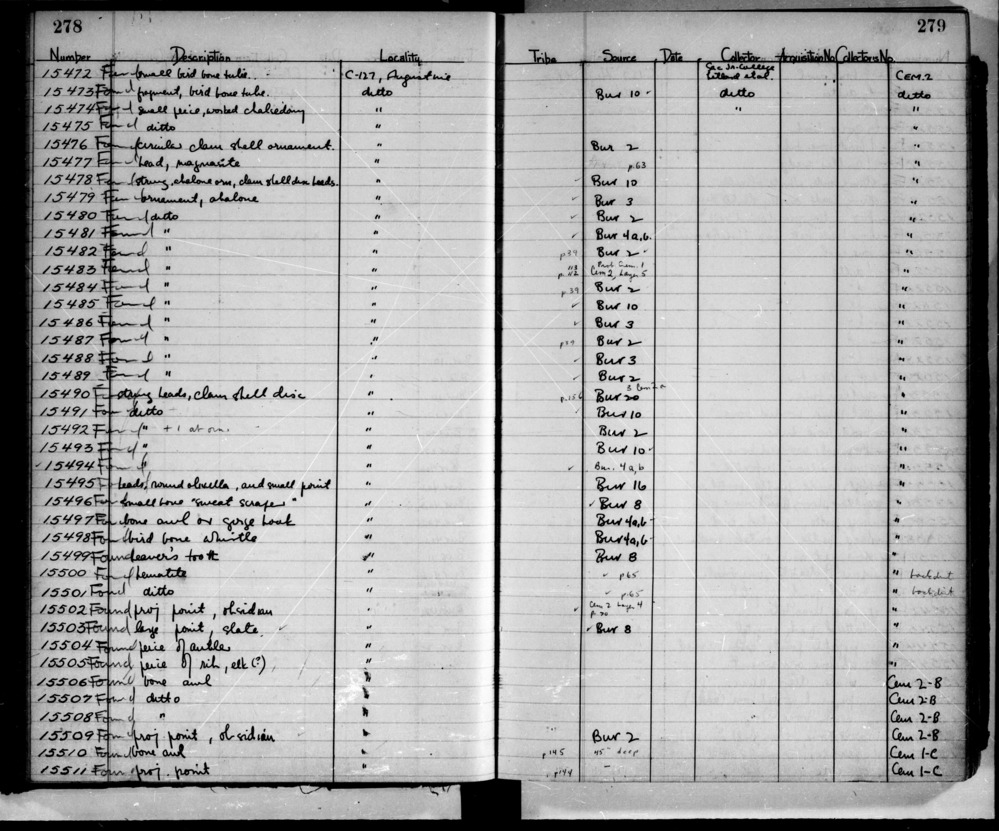 278 279
Number Description Locality Tribe Source Date Collector Acquisition No. Collectors No.
15472 Found small bird bone tube. C-127, Augustine Sac. Jr. College Cem. 2
15473 Found fragment, bird bone tube. ditto Bur 10 ditto ditto
15474 Found small piece, worked chalcedony " " "
15475 Found ditto " "
15476 Found circular clam shell ornament. " Bur 2 "
15477 Found bead, magnesite " p.63 "
15478 Found string, abalone orn, clam shell disc beads. " ✓ Bur 10 "
15479 Found ornament, abalone " ✓ Bur 3 "
15480 Found ditto " ✓ Bur 2 "
15481 Found " " ✓ Bur 4a,b. "
15482 Found " " p39 Bur 2 "
15483 Found " " p.42 Cem 2, Layer 5 "
15484 Found " " p.39 Bur 2 "
15485 Found " " ✓ Bur 10 "
15486 Found " " ✓ Bur 3 "
15487 Found " " p39 Bur 2 "
15488 Found " " ✓ Bur 3 "
15489 Found " " ✓ Bur 2 "
15490 Found string beads, clam shell disc " p.156 Bur 20 "
15491 Found ditto " ✓ Bur 10 "
15492 Found " + 1 ab orn. " Bur 2 "
15493 Found " " Bur 10 "
15494 Found " " ✓ Bur. 4a,b "
15495 Found beads, round olivella, and small point " Bur 16 "
15496 Found small bone "sweat scraper" " ✓ Bur 8 "
15497 Found bone awl or gorge hook " Bur 4a,b "
15498 Found bird bone whistle " Bur 4a,b "
15499 Found beaver's tooth " Bur 8 "
15500 Found hematite " ✓ p65 " backdirt
15501 Found ditto " ✓ p.65 " backdirt
15502 Found proj point, obsidian " ✓ Cem 2 Layer 4 "
15503 Found large point, slate. " ✓ Bur 8 "
15504 Found piece of antler " "
15505 Found piece of rib, elk (?) " "
15506 Found bone awl " Cem 2-B
15507 Found ditto " Cem 2-B
15508 Found " " Cem 2-B
15509 Found proj point, obsidian " Bur 2 Cem 2-B
15510 Found bone awl " p145 45" deep Cem 1-C
15511 Found proj. point " p144 Cem 1-C